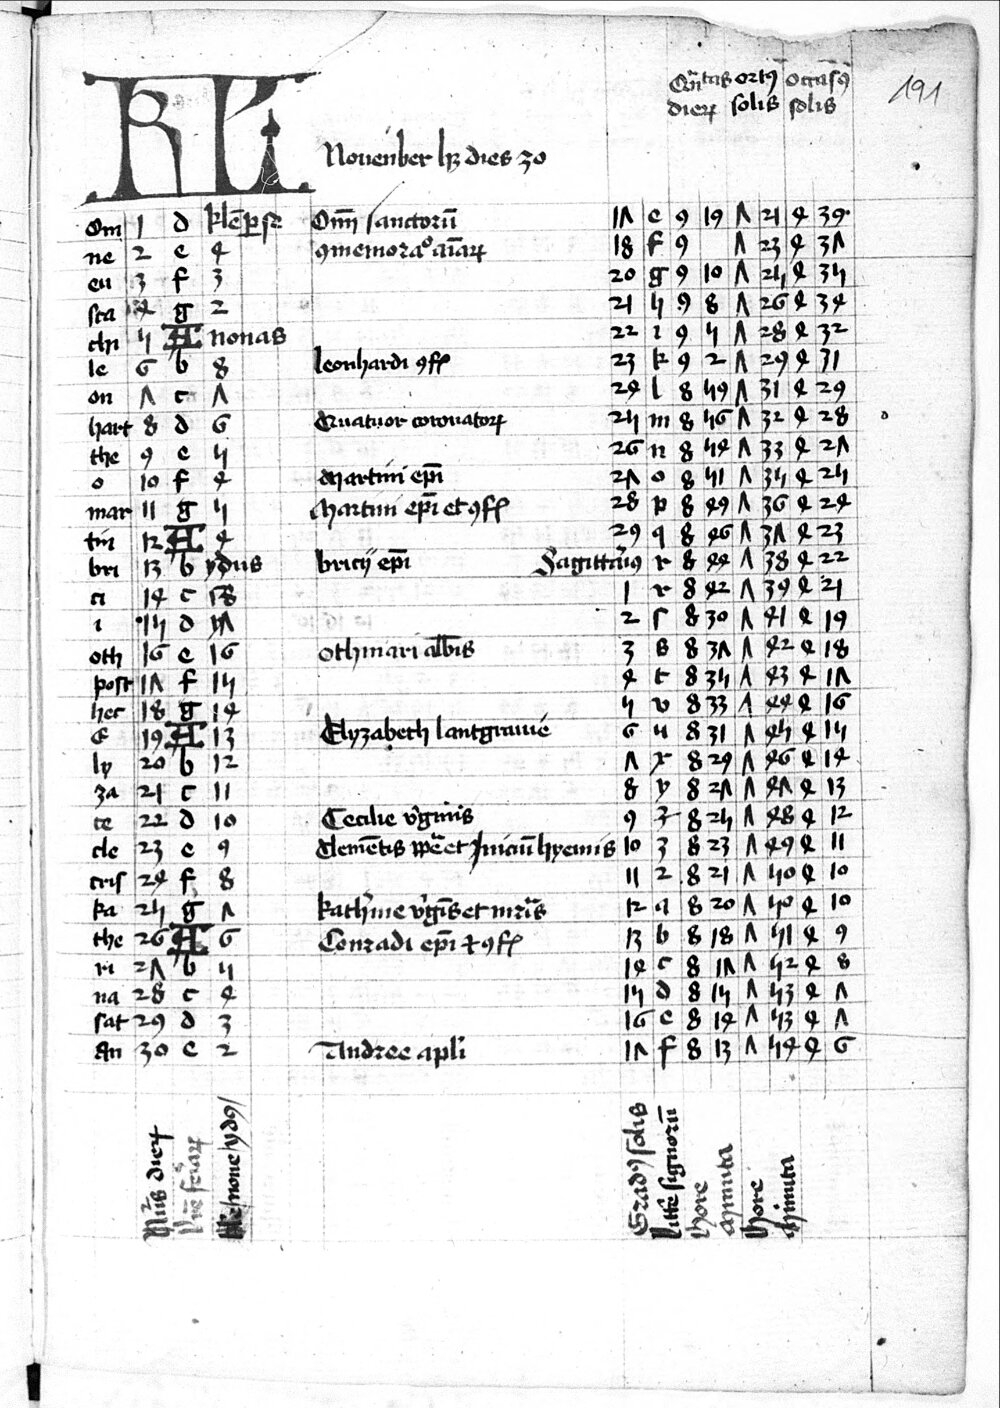 Qūtas ortꝰ occasꝰ
dierꝝ solis solis
191
KL
Nouember hꝫ dies 30
Om 1 d kl'e Oīm sanctorū 17 e 9 19 7 21 4 39
ne 2 e 4 ꝯmemoraᵒ aīaꝝ 18 f 9 7 23 4 37
eu 3 f 3 20 g 9 10 7 24 4 35
sta 4 g 2 21 h 9 8 7 26 4 34
chi 5 A nonas 22 i 9 5 7 28 4 32
le 6 b 8 leonhardi ꝯff 23 k 9 2 7 29 4 31
on 7 c 7 24 l 8 59 7 31 4 29
hart 8 d 6 Quatuor coronatoꝝ 25 m 8 56 7 32 4 28
the 9 e 5 26 n 8 54 7 33 4 27
o 10 f 4 Martini ep̄i 27 o 8 51 7 35 4 25
mar 11 g 5 Martini ep̄i et ꝯff 28 p 8 49 7 36 4 24
tin 12 A 4 29 q 8 46 7 37 4 23
bri 13 b ydus bricij ep̄i Sagittariꝰ r 8 44 7 38 4 22
ci 14 c 18 1 r 8 42 7 39 4 21
i 15 d 17 2 s 8 30 7 41 4 19
oth 16 e 16 othmari abb̄is 3 s 8 37 7 42 4 18
post 17 f 15 4 t 8 35 7 43 4 17
hec 18 g 14 5 v 8 33 7 44 4 16
E 19 A 13 Elyzabeth lantgrauie 6 u 8 31 7 45 4 15
ly 20 b 12 7 x 8 29 7 46 4 14
za 21 c 11 8 y 8 27 7 47 4 13
ce 22 d 10 Cecilie v̄ginis 9 z 8 25 7 48 4 12
cle 23 e 9 Clemētis pp̄e et Iniciū hyemis 10 3 8 23 7 49 4 11
cris 24 f 8 11 2 8 21 7 50 4 10
ka 25 g 7 kath'ine v̄gīs et mr̄is 12 a 8 20 7 50 4 10
the 26 A 6 Conradi ep̄i ⁊ ꝯff 13 b 8 18 7 51 4 9
ri 27 b 5 14 c 8 17 7 52 4 8
na 28 c 4 15 d 8 15 7 53 4 7
sat 29 d 3 16 e 8 14 7 53 4 7
An 30 e 2 Andree apl'i 17 f 8 13 7 54 4 6
Nūs dierꝝ
lr̄e feriaꝝ
kl'e none ydꝰ
Gradꝰ solis
litt'e signorū
hore
minuta
hore
minuta